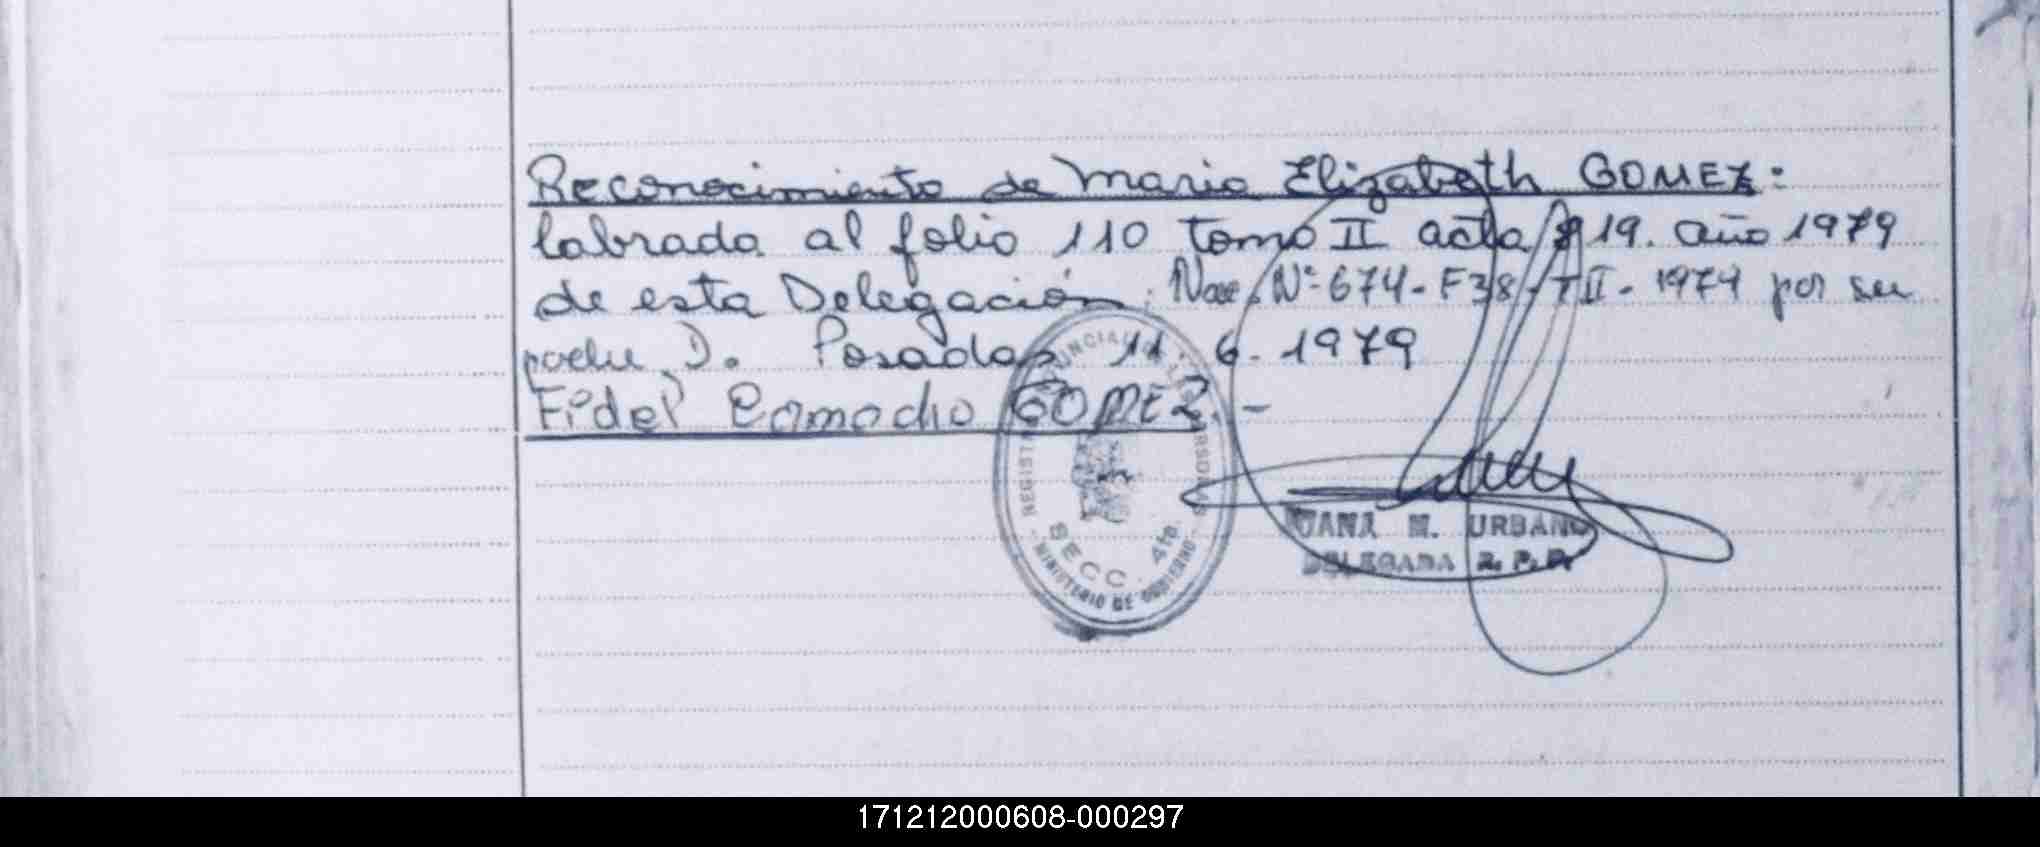 Reconocimiento de Maria Elizabeth GOMEZ:
labrada al folio 110 tomo II acta 819. año 1979
de esta Delegación. Nac. Nº 674-F38-TII-1974 por su
padre D. Posadas 11 6. 1979
Fidel Comodio GOMEZ. -
REGISTRO PROVINCIAL DE LAS PERSONAS
SECC. 4ta.
MINISTERIO DE GOBIERNO
JUANA M. URBANO
DELEGADA R. P. P.
171212000608-000297